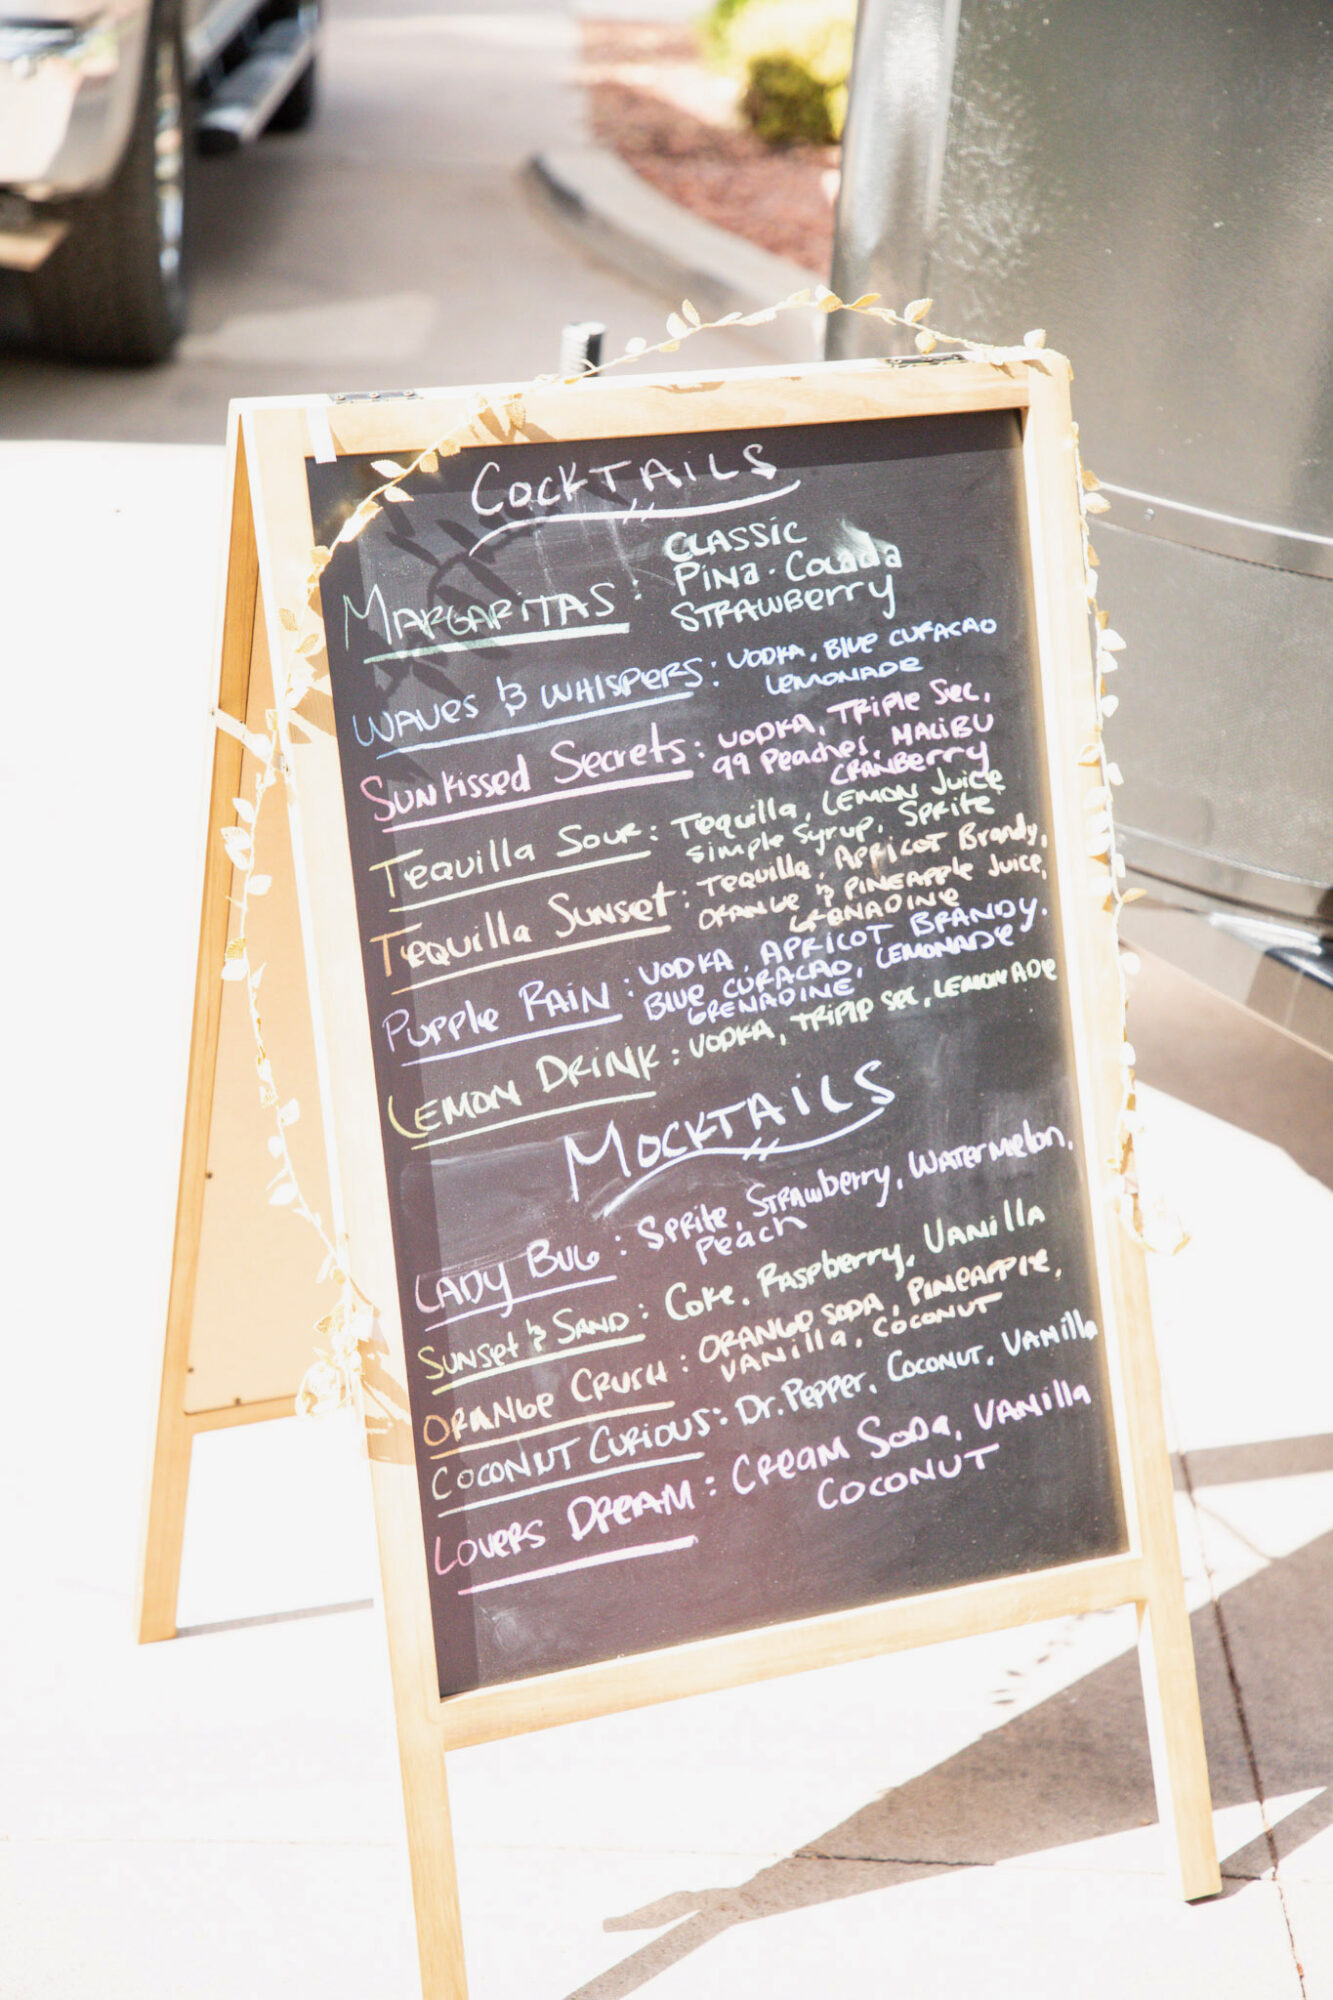 COCKTAILS
MARGARITAS: CLASSIC
PINA · COLADA
STRAWBERRY
WAVES & WHISPERS: VODKA, BLUE CURACAO
LEMONADE
SUNKISSED SECRETS: VODKA, TRIPLE SEC,
99 PEACHES, MALIBU
CRANBERRY
TEQUILLA SOUR: TEQUILLA, LEMON JUICE
SIMPLE SYRUP, SPRITE
TEQUILLA SUNSET: TEQUILLA, APRICOT BRANDY,
ORANGE & PINEAPPLE JUICE,
GRENADINE
PURPLE RAIN: VODKA, APRICOT BRANDY.
BLUE CURACAO, LEMONADE
GRENADINE
LEMON DRINK: VODKA, TRIPLE SEC, LEMONADE
MOCKTAILS
LADY BUG: SPRITE, STRAWBERRY, WATERMELON,
PEACH
SUNSET & SAND: COKE, RASPBERRY, VANILLA
ORANGE CRUSH: ORANGE SODA, PINEAPPLE,
VANILLA, COCONUT
COCONUT CURIOUS: DR. PEPPER, COCONUT, VANILLA
LOVERS DREAM: CREAM SODA, VANILLA
COCONUT